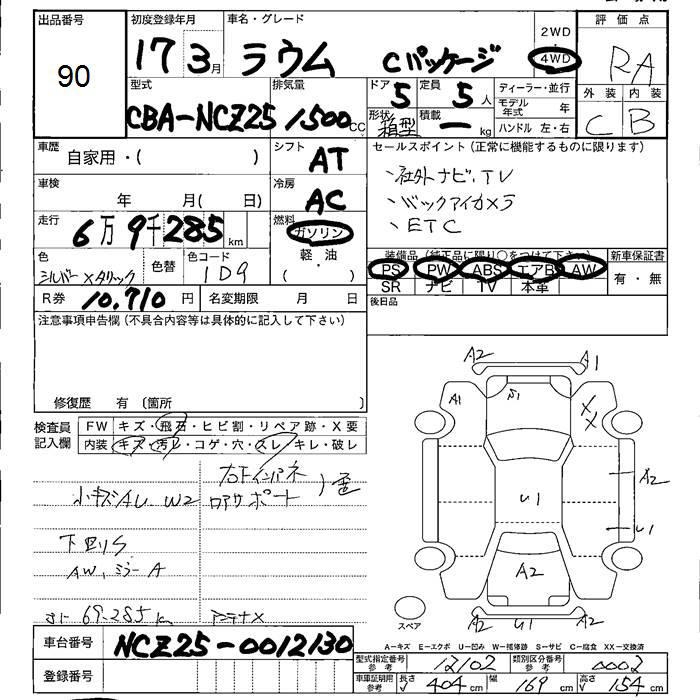 出品番号 初度登録年月 車名・グレード 2WD 評価点
90 17 3月 ラウム Cパッケージ 4WD RA
型式 排気量 ドア 定員 ディーラー・並行 外装 内装
CBA-NCZ25 1500cc 5 5人 モデル年式 年 C B
形状 箱型 積載 ー kg ハンドル 左・右
車歴 自家用・( ) シフト AT セールスポイント(正常に機能するものに限ります)
車検 年 月( 日) 冷房 AC 、社外ナビ、TV
、バックアイカメラ
、ETC
走行 6万9千285km 燃料 ガソリン
軽・油( )
色 シルバーメタリック 色替 色コード 1D9
装備品(純正品に限り○をつけて下さい) 新車保証書
PS PW ABS エアB AW 有・無
SR ナビ TV 本革
R券 10,710円 名変期限 月 日 後日品
注意事項申告欄(不具合内容等は具体的に記入して下さい)
修復歴 有 〔箇所 〕
検査員記入欄 FW キズ・飛石・ヒビ割・リペア跡・X要
内装 キズ・汚レ・コゲ・穴・スレ・キレ・破レ
小キズAU W2
右Fインパネ
ロアサポート
下回りS
AW、ミラーA
69.285km アンテナX
A2 A1
A1 S1 X X
U1 A2
U1
A2
A2 U1 A2
スペア
A-キズ E-エクボ U-凹み W-補修跡 S-サビ C-腐食 XX-交換済
車台番号 NCZ25-0012130
登録番号
型式指定番号参考 12102 類別区分番号参考 0002
車庫証明用参考 長さ 404cm 幅 169cm 高さ 154cm